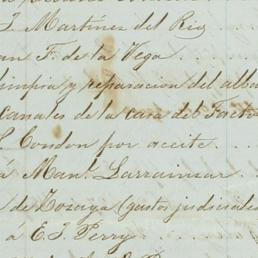 J. Martinez del Rio
an F. de la Vega
limpia y reparacion del alba
canales de la casa del
Condon por aceite
á Man.l Larrainzar
de Zozaya (gastos judiciales
á E. J. Perry